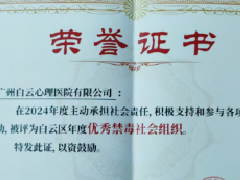 荣誉证书
广州白云心理医院有限公司：
在2024年度主动承担社会责任，积极支持和参与各项
动，被评为白云区年度优秀禁毒社会组织。
特发此证，以资鼓励。